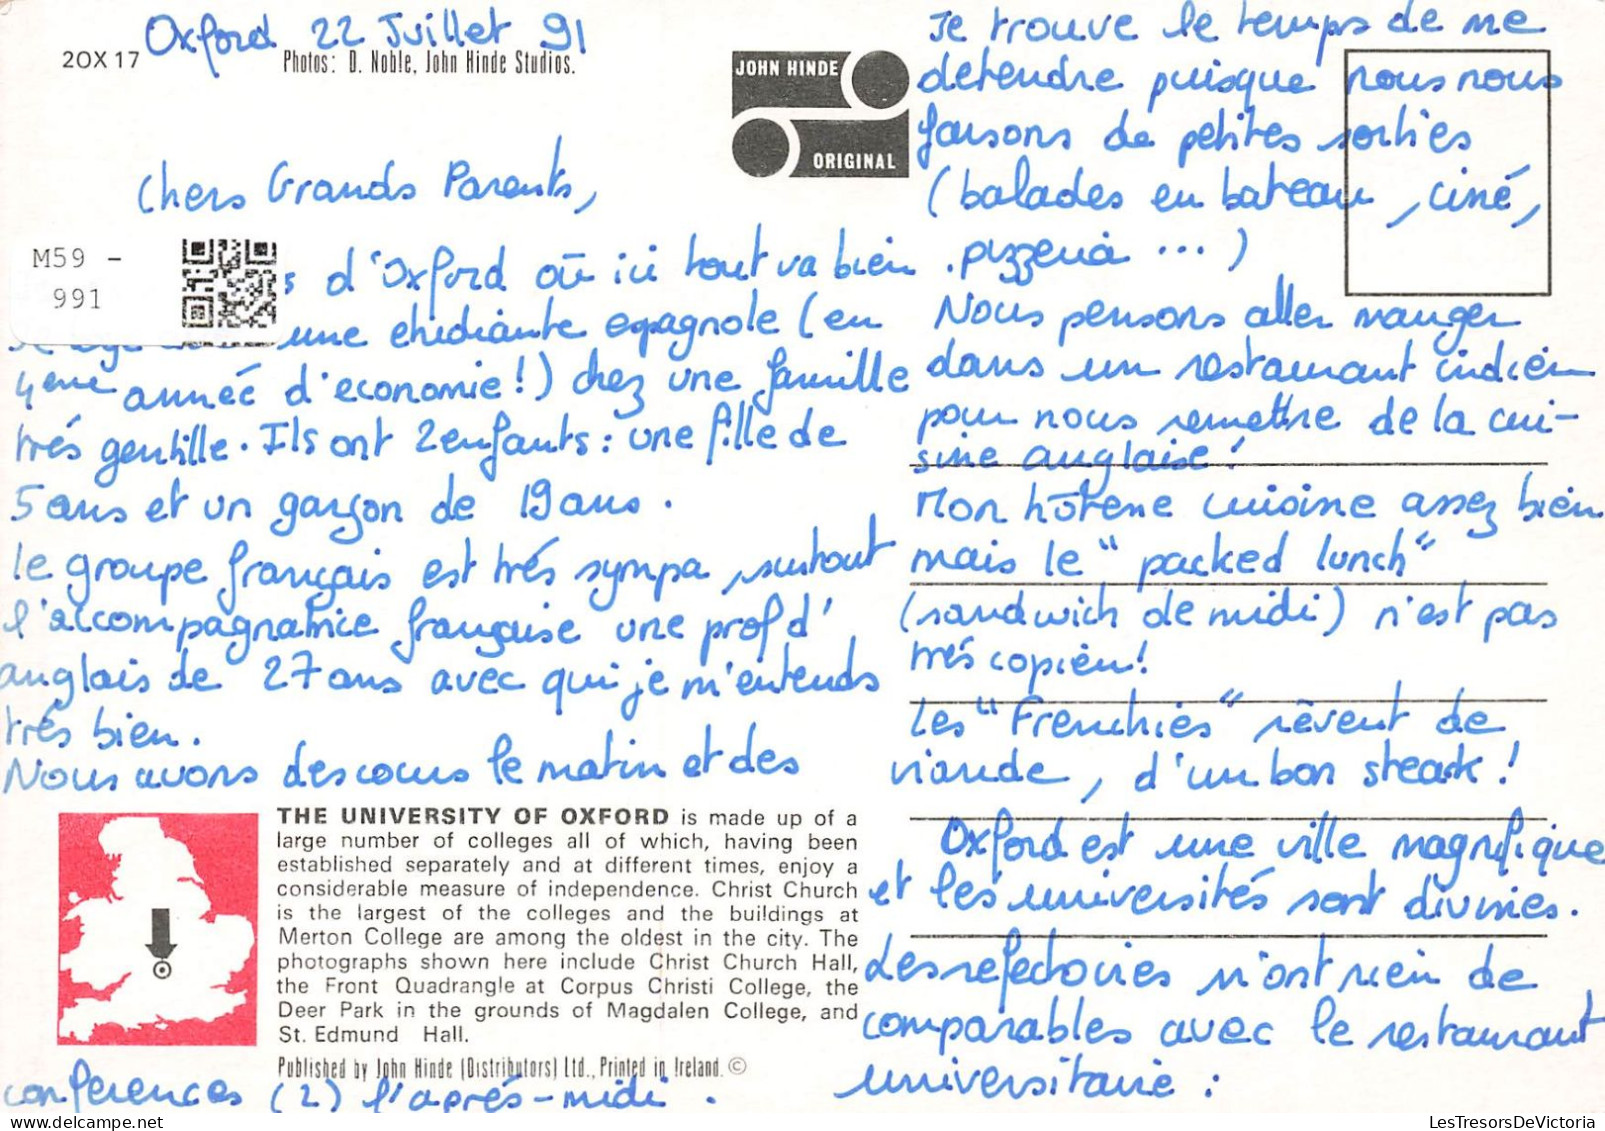 Oxford 22 Juillet 91
2OX 17
Photos: D. Noble, John Hinde Studios.
JOHN HINDE
ORIGINAL
Chers Grands Parents,
M59 -
991
d'Oxford où ici tout va bien
une etudiante espagnole (en
4ème année d'economie!) chez une famille
très gentille. Ils ont 2 enfants: une fille de
5 ans et un garçon de 19 ans.
Le groupe français est très sympa, surtout
l'accompagnatrice française une prof d'
anglais de 27 ans avec qui je m'entends
très bien.
Nous avons des cours le matin et des
THE UNIVERSITY OF OXFORD is made up of a
large number of colleges all of which, having been
established separately and at different times, enjoy a
considerable measure of independence. Christ Church
is the largest of the colleges and the buildings at
Merton College are among the oldest in the city. The
photographs shown here include Christ Church Hall,
the Front Quadrangle at Corpus Christi College, the
Deer Park in the grounds of Magdalen College, and
St. Edmund Hall.
Published by John Hinde (Distributors) Ltd., Printed in Ireland. ©
conferences (2) l'après-midi.
Je trouve le temps de me
detendre puisque nous nous
faisons de petites sorties
(balades en bateau, ciné,
pizzeria ...)
Nous pensons aller manger
dans un restaurant indien
pour nous remettre de la cui-
sine anglaise!
Mon hôtesse cuisine assez bien
mais le "packed lunch"
(sandwich de midi) n'est pas
très copieu!
Les "Frenchies" rêvent de
viande, d'un bon steack!
Oxford est une ville magnifique
et les universités sont divines.
Les refectoires n'ont rien de
comparables avec le restaurant
universitaire:
LesTresorsDeVictoria.com